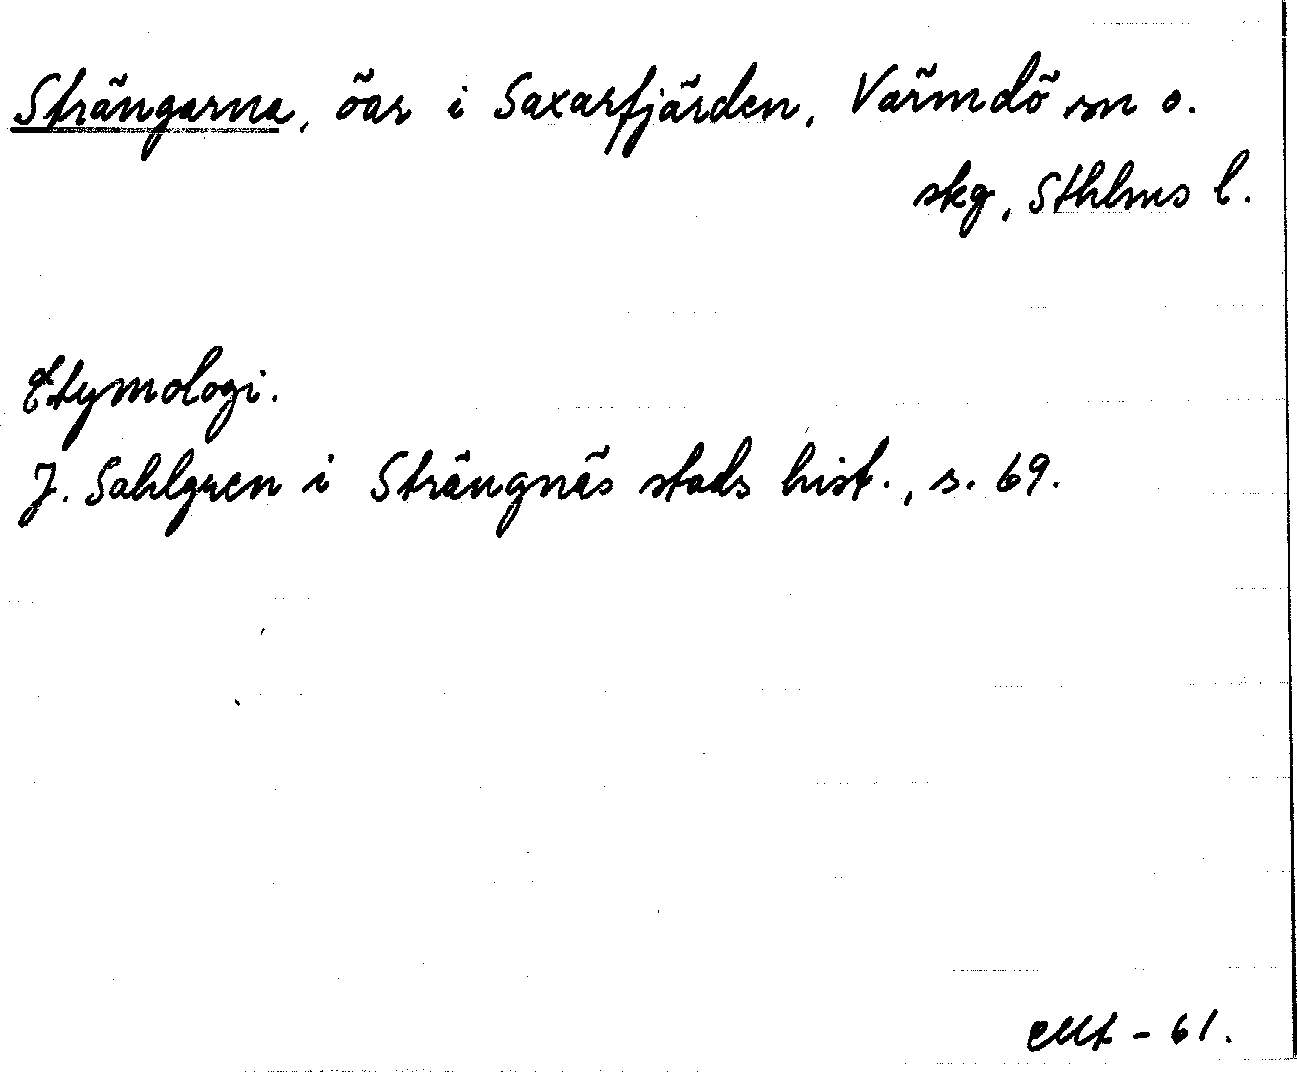 Strängarna, öar i Saxarfjärden, Värmdö sn o.
skg, Sthlms l.
Etymologi.
J. Sahlgren i Strängnäs stads hist., s. 69.
- 61.